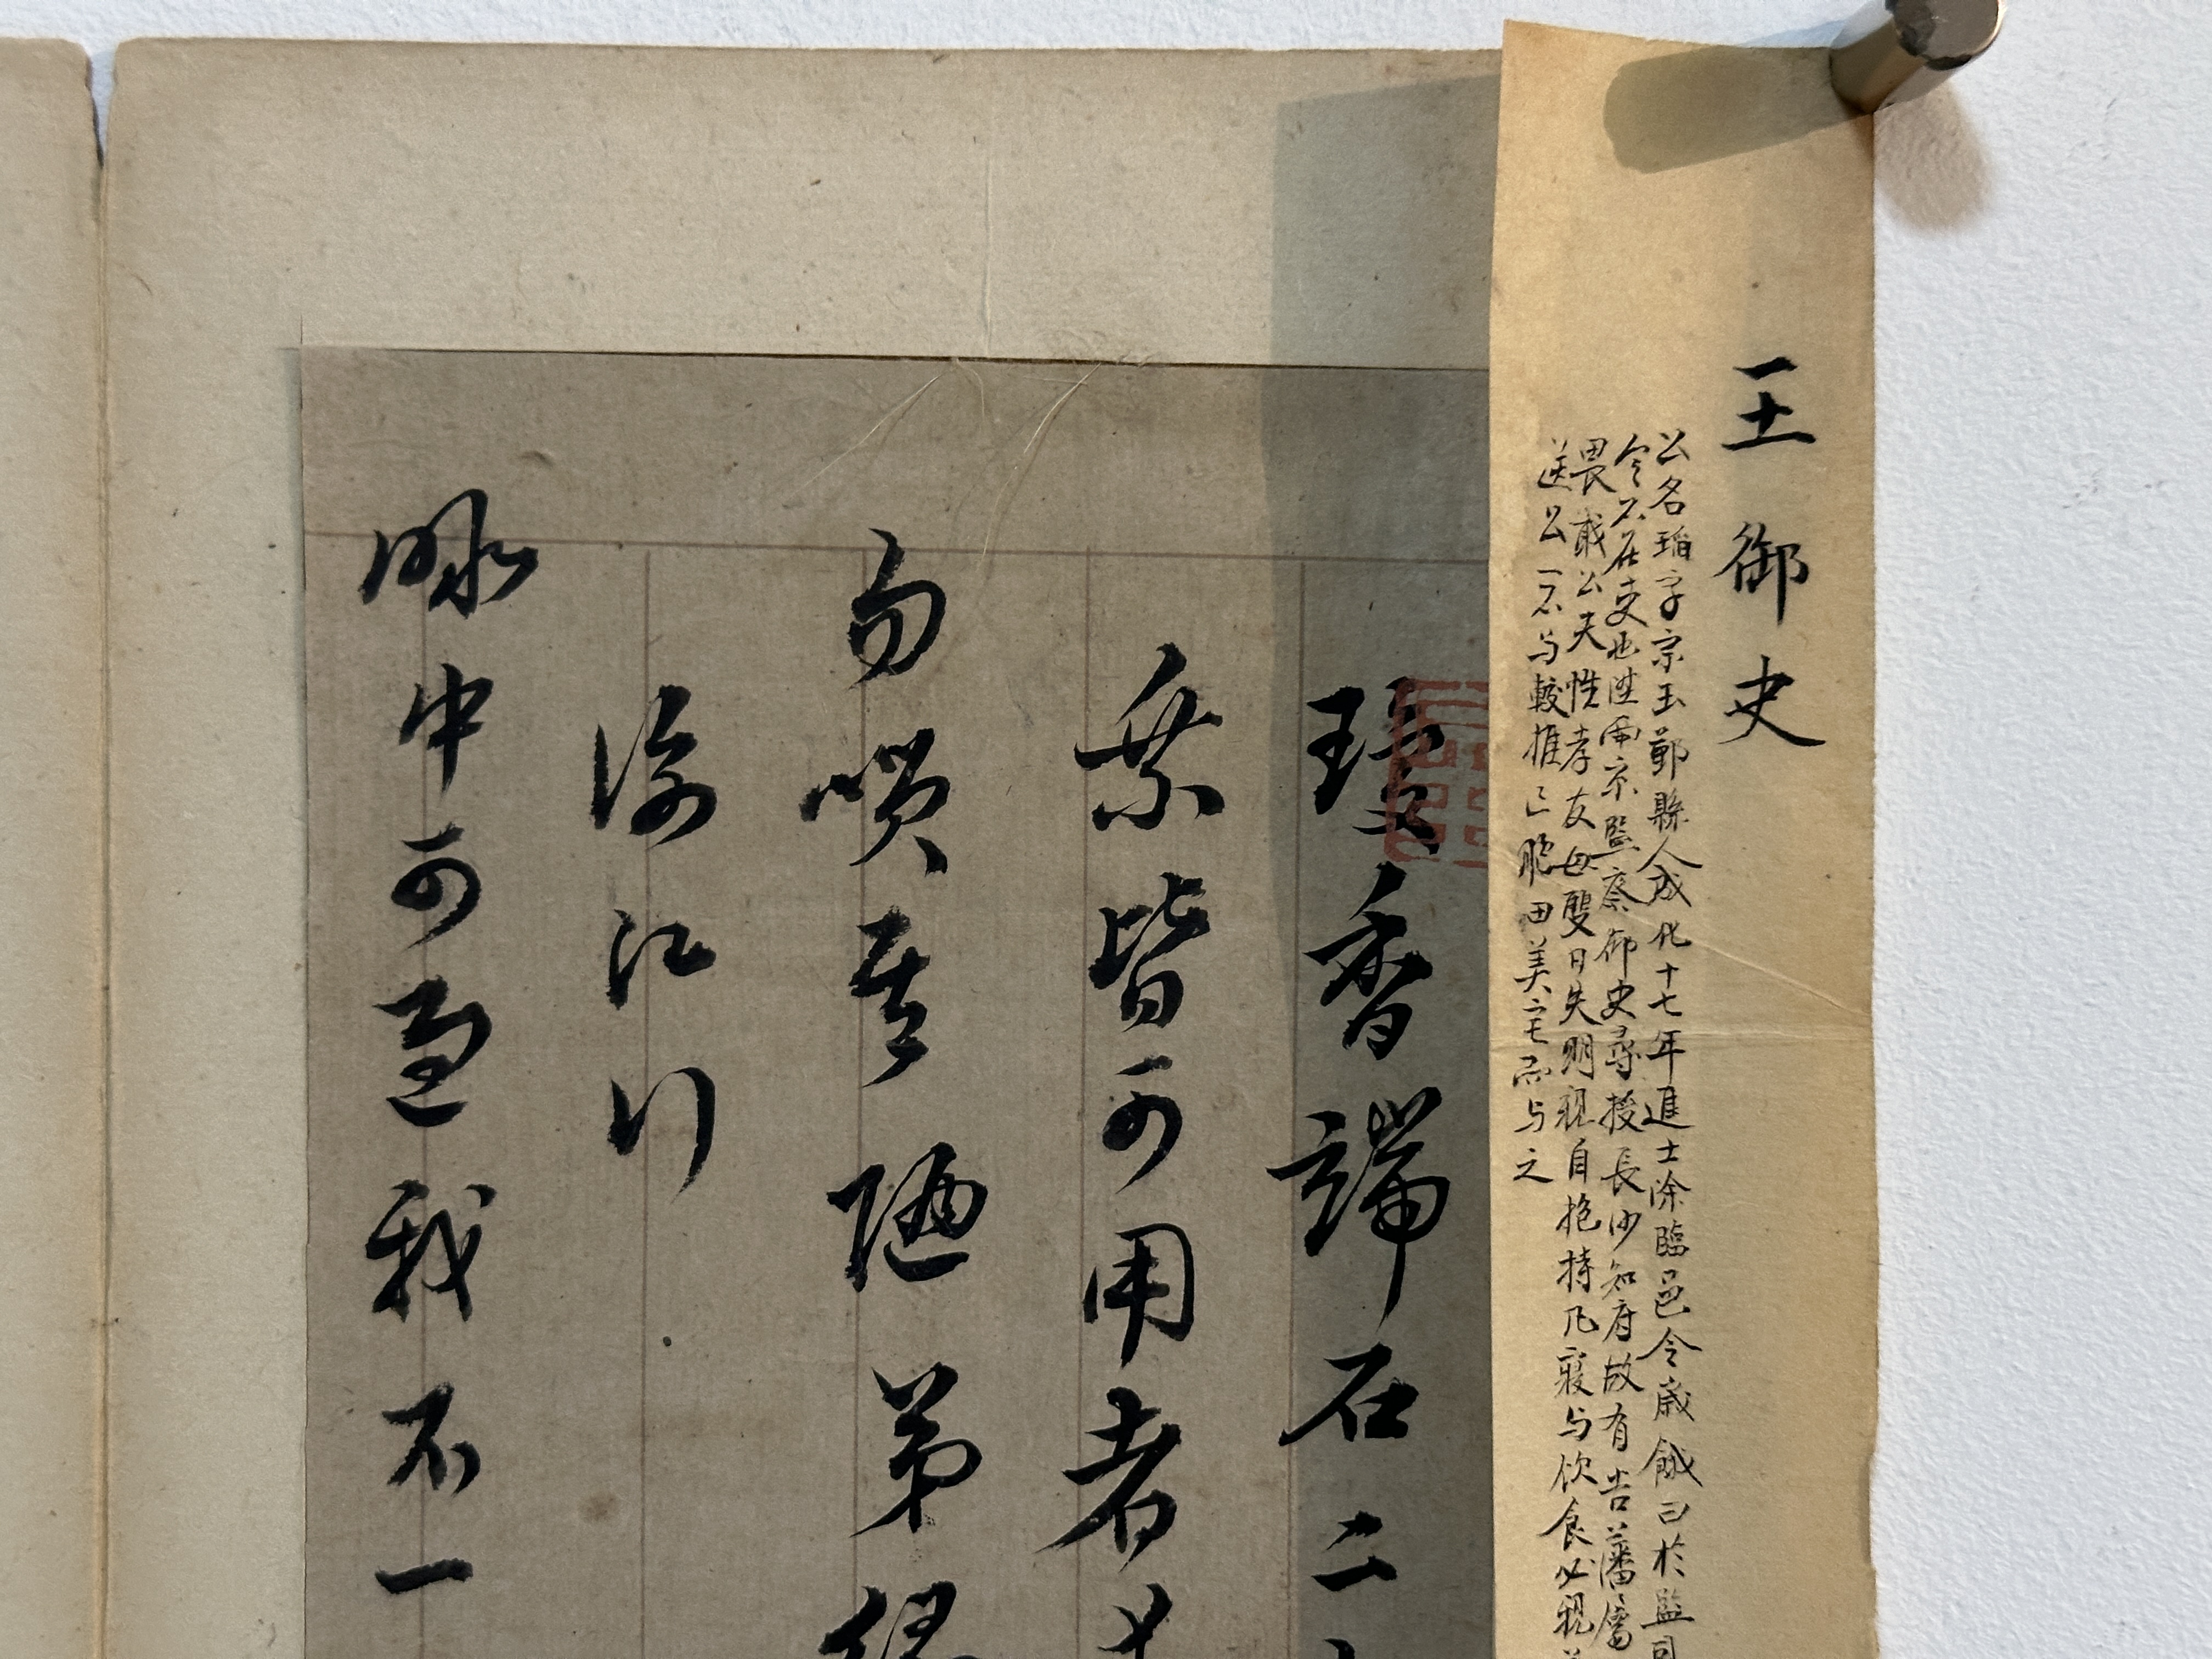 王御史
公名瑫字宗玉鄞縣人成化十七年進士涂臨邑令歲餓曰於監司
令不在吏也陞南京監察御史尋授長沙知府故有吉藩屬
畏戢公天性孝友母雙目失明親自抱持凡寢与飲食必親
送公一不与較推己肥田美宅而与之
香端石二
業皆可用者
勿哂其陋弟
江行
咏中可
我不一